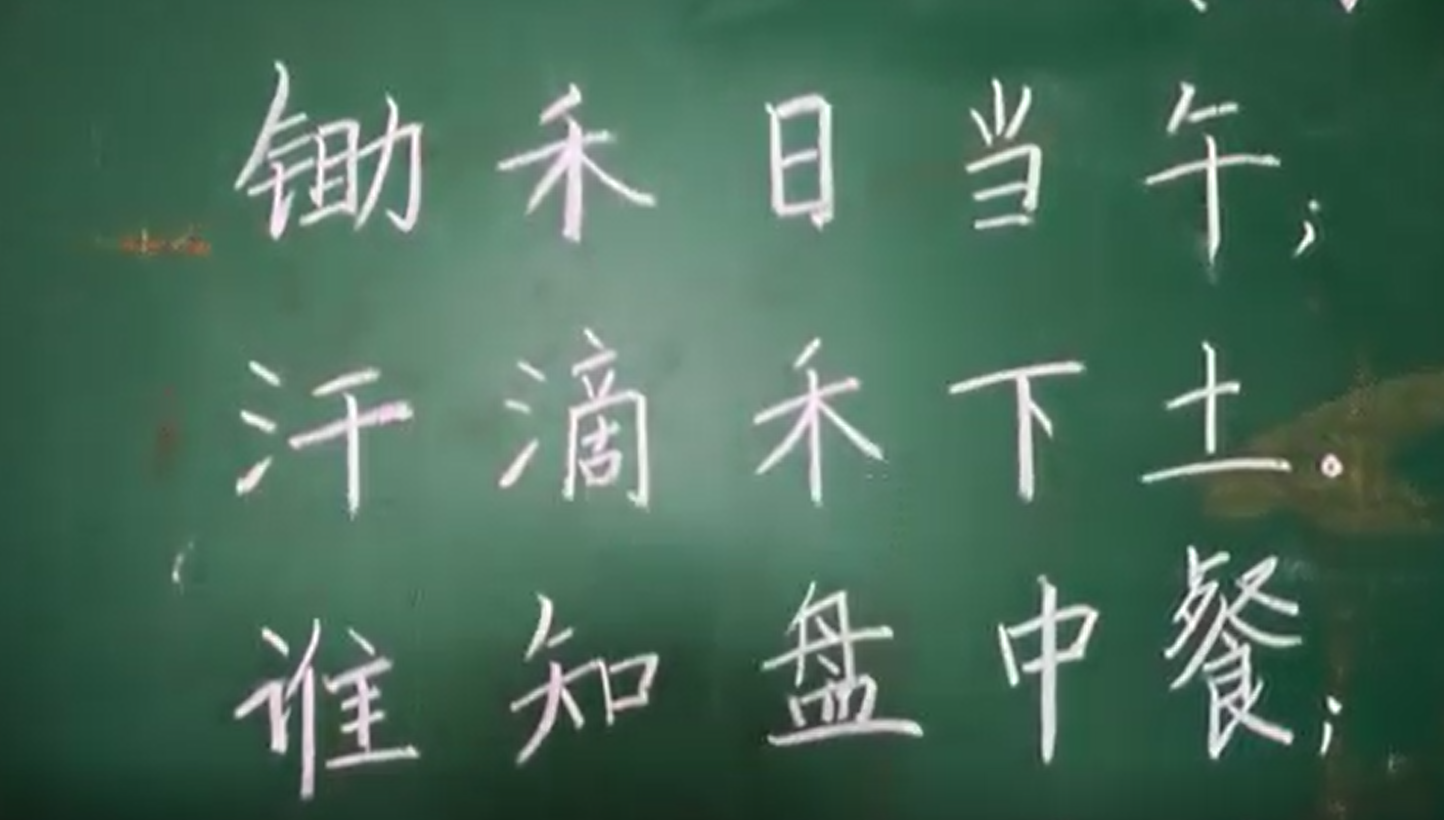 锄禾日当午；
汗滴禾下土。
谁知盘中餐；